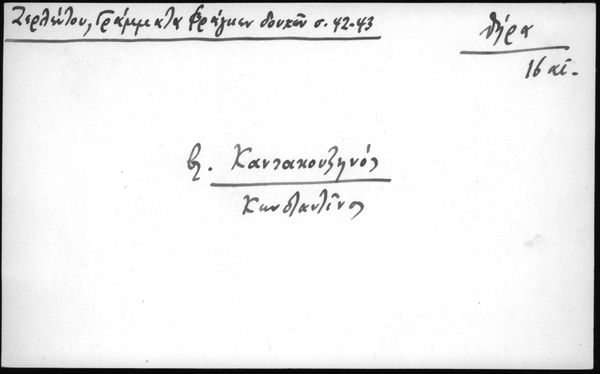 Ζερλέντου, Γράμματα Φράγκων δουκῶν σ. 42-43
Θήρα
16 αἰ.
βλ. Καντακουζηνός
Κωνσταντῖνος